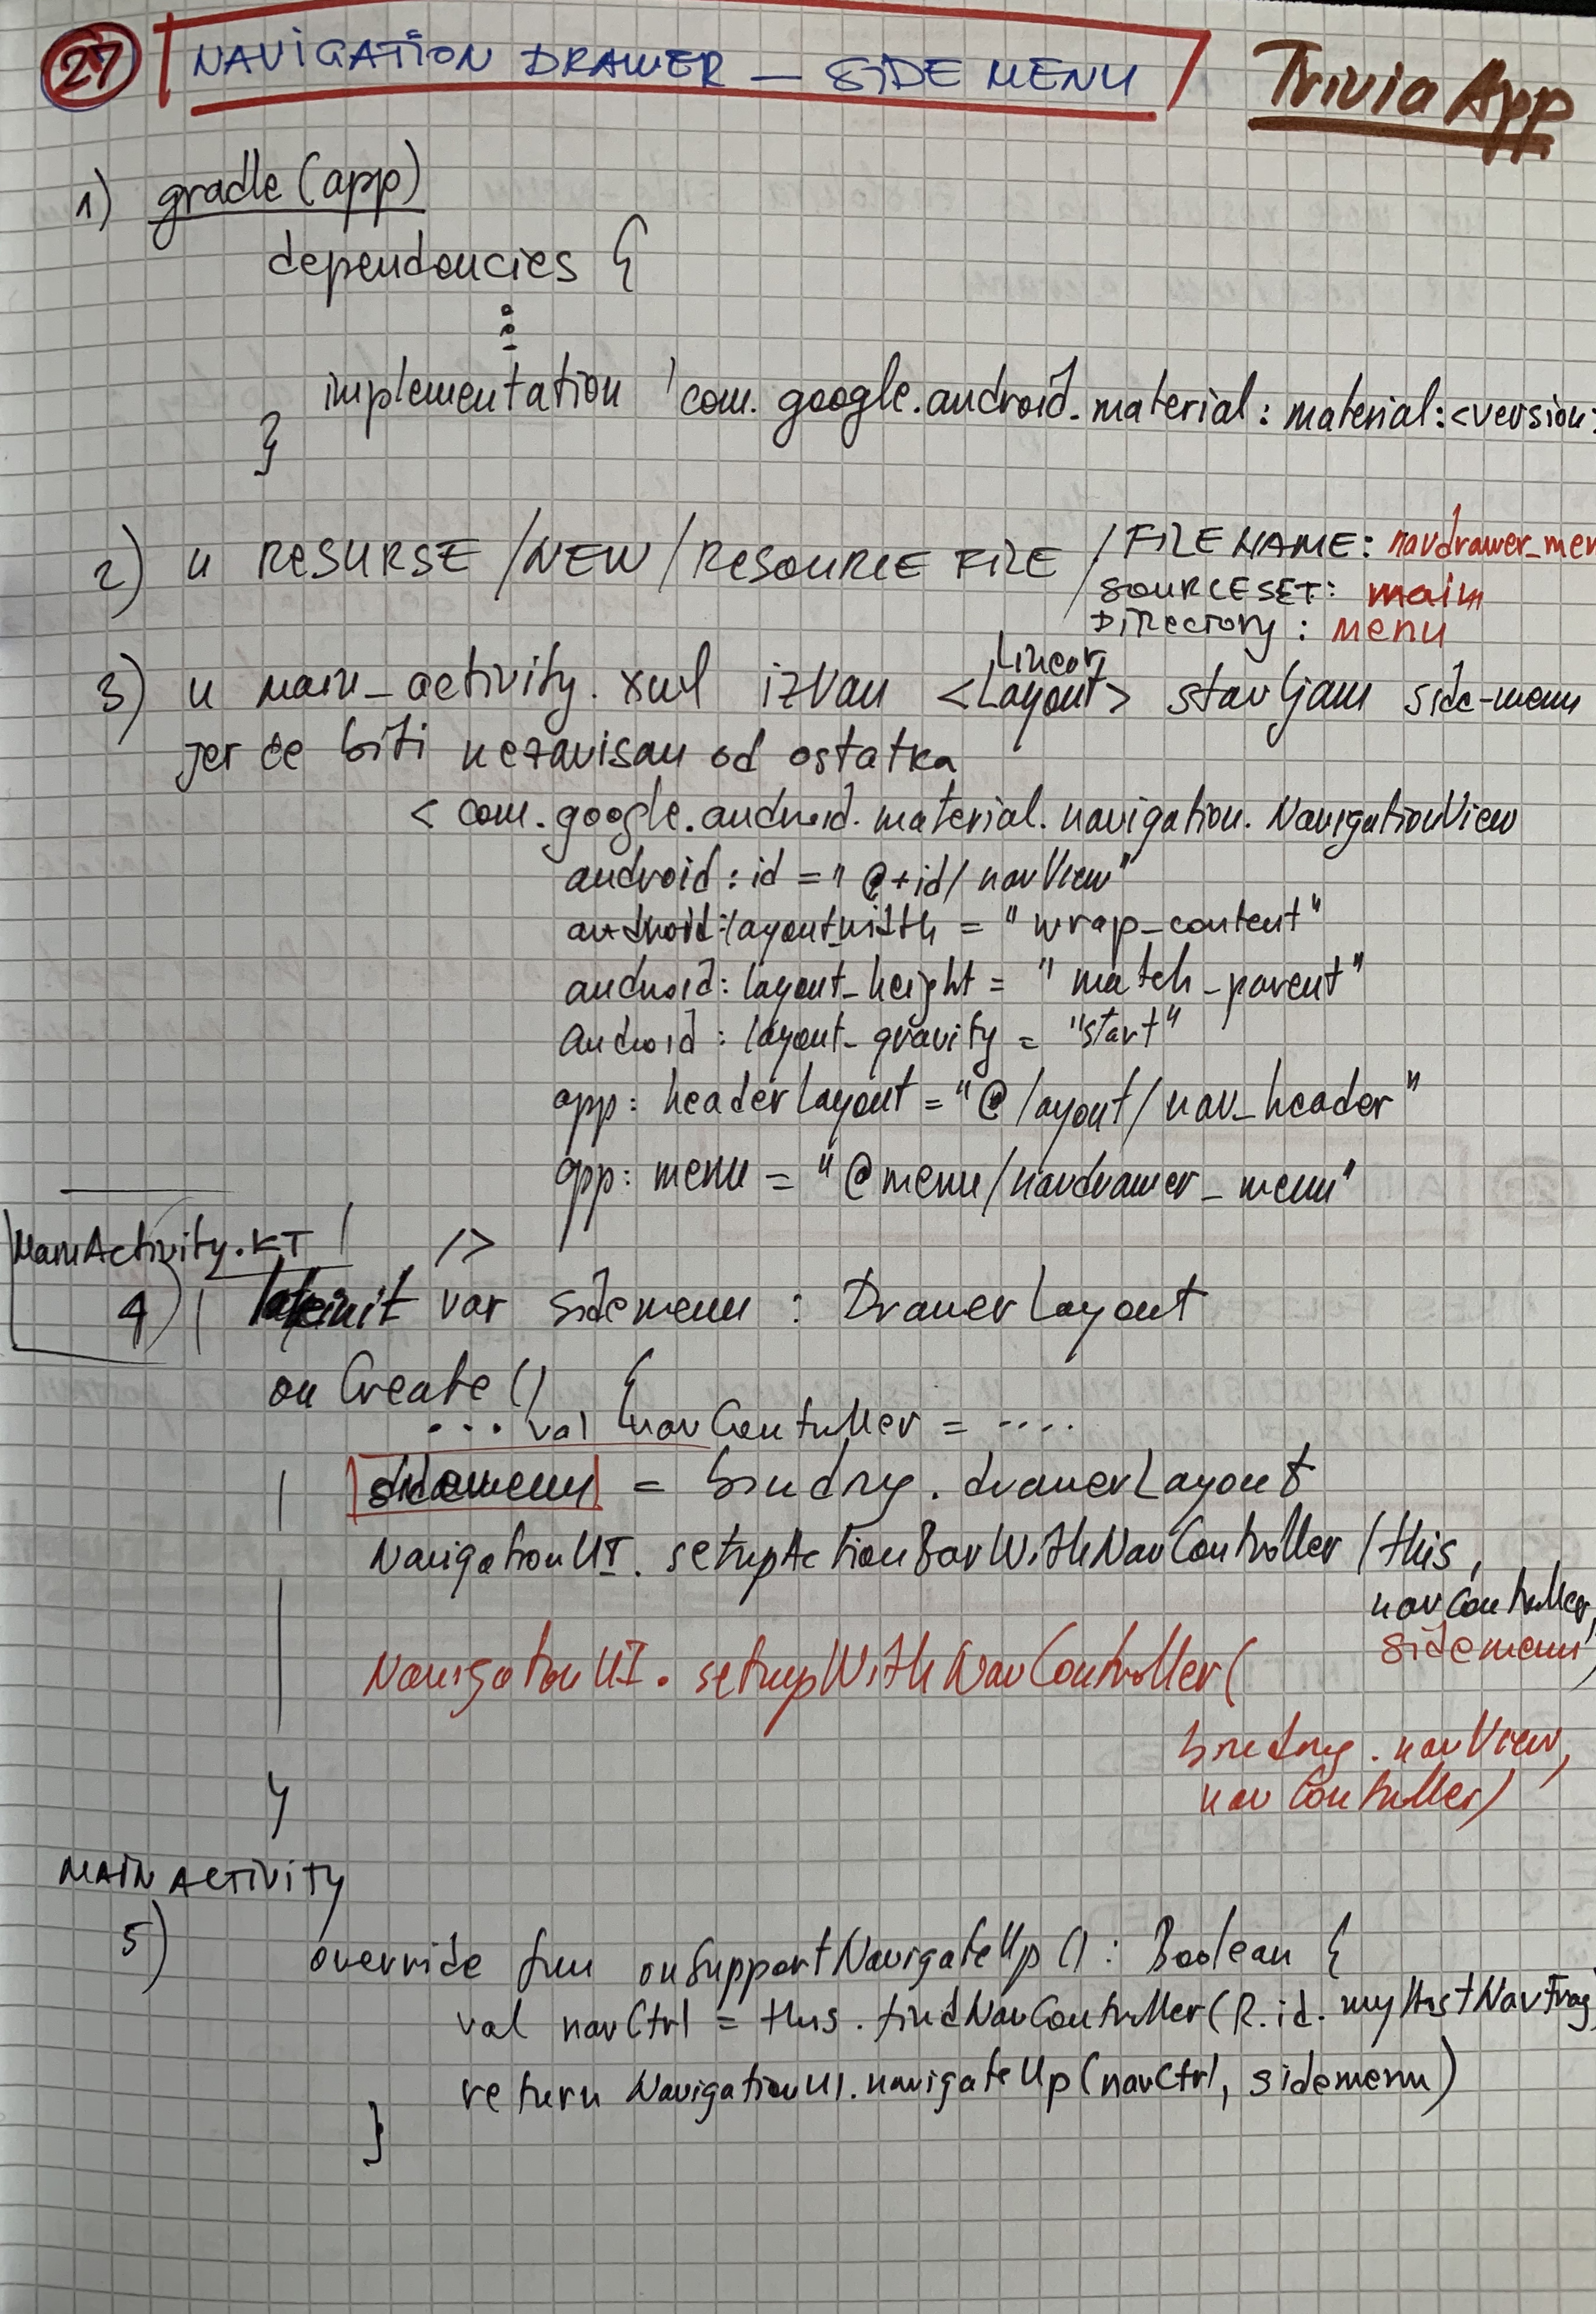 27 NAVIGATION DRAWER — SIDE MENU Trivia App
1) gradle (app)
dependencies {
⋮
implementation 'com.google.android.material:material:<version>
}
2) u RESURSE / NEW / RESOURCE FILE / FILE NAME: navdrawer_men
SOURCESET: main
DIRECTORY: menu
3) u main_activity.xml izvan <LinearLayout> stavljam side-menu
jer će biti nezavisan od ostatka
<com.google.android.material.navigation.NavigationView
android:id="@+id/navView"
android:layout_width="wrap_content"
android:layout_height="match_parent"
android:layout_gravity="start"
app:headerLayout="@layout/nav_header"
app:menu="@menu/navdrawer_menu"
/>
MainActivity.KT
4) lateinit var sidemenu : DrawerLayout
onCreate() {
... val navController = ....
sidemenu = binding.drawerLayout
NavigationUI.setupActionBarWithNavController(this,
navController,
sidemenu)
NavigationUI.setupWithNavController(
binding.navView,
navController)
}
MAIN ACTIVITY
5) override fun onSupportNavigateUp(): Boolean {
val navCtrl = this.findNavController(R.id.myHostNavFrag
return NavigationUI.navigateUp(navCtrl, sidemenu)
}